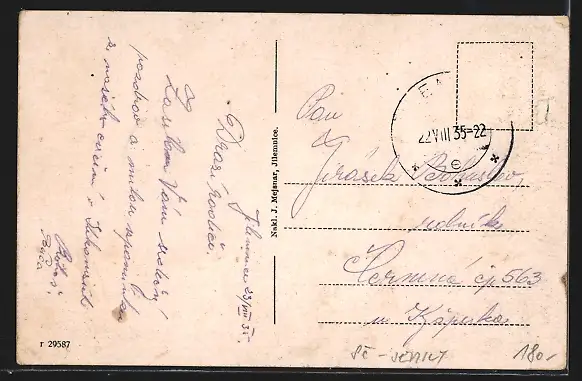 Jilemnice 23/VIII 35.
Drazí rodiče.
Zasílám Vám srdečný
pozdrav a milou vzpomínku
z našeho cvičení v
Nakl. J. Mejsnar, Jilemnice.
22 VIII 35-22
e
Pan
Jirásek Bohuslav,
rolník
Čermná čp 563
u Kyšperka
r 29587
180.-